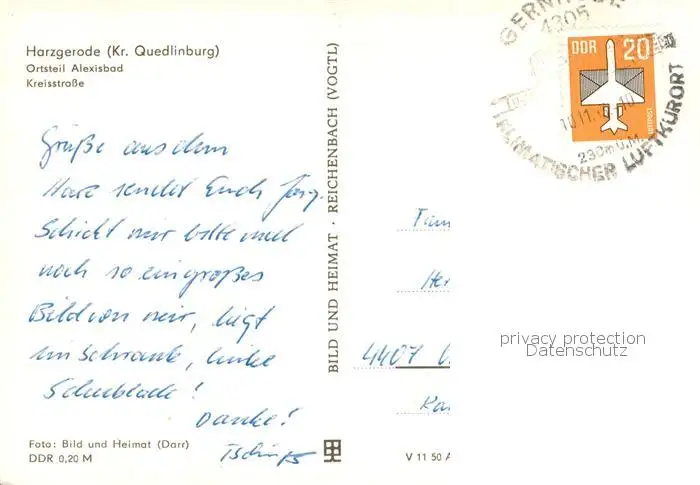 Harzgerode (Kr. Quedlinburg)
Ortsteil Alexisbad
Kreisstraße
Grüße aus dem
Harz sendet Euch Jörg.
Schickt mir bitte mal
noch so ein großes
Bild von mir, liegt
im Schrank, linke
Schublade!
Danke!
Tschüß
Foto: Bild und Heimat (Darr)
DDR 0,20 M
BILD UND HEIMAT · REICHENBACH (VOGTL)
V 11 50 A
4305
DDR 20
LUFTPOST
10.11.
230m ü.M.
KLIMATISCHER LUFTKURORT
Her
4407
privacy protection
Datenschutz